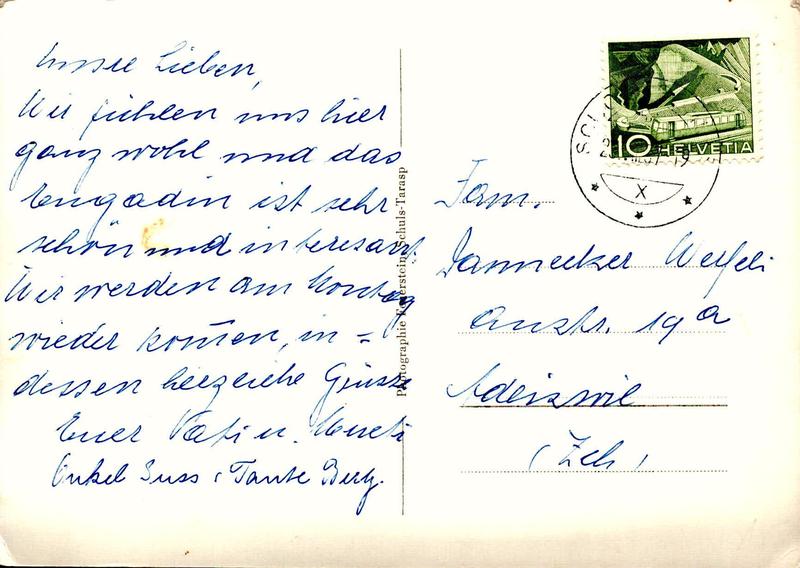 Unsre Lieben,
Wir fühlen uns hier
ganz wohl und das
Engadin ist sehr
schön und interesant.
Wir werden am Montag
wieder kom̄en, in =
dessen herzliche Grüsse
Euer Vati u. Mueti
Onkel Suss, Tante Berty.
Photographie Feuerstein, Schuls-Tarasp
10 HELVETIA
X
Fam.
Dannecker
19 a
Adliswil
(Zch)